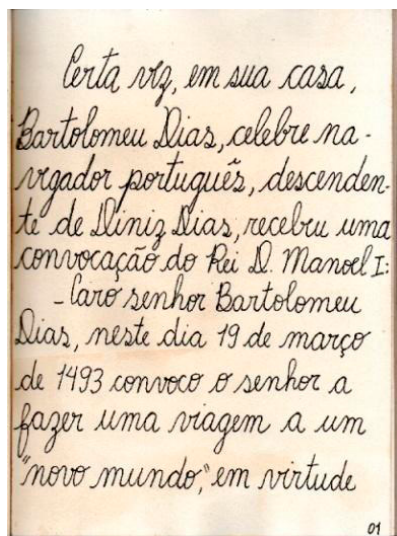 Certa vez, em sua casa,
Bartolomeu Dias, celebre na-
vegador português, descenden-
te de Diniz Dias, recebeu uma
convocação do Rei D. Manoel I:
- Caro senhor Bartolomeu
Dias, neste dia 19 de março
de 1493 convoco o senhor a
fazer uma viagem a um
"novo mundo", em virtude
01